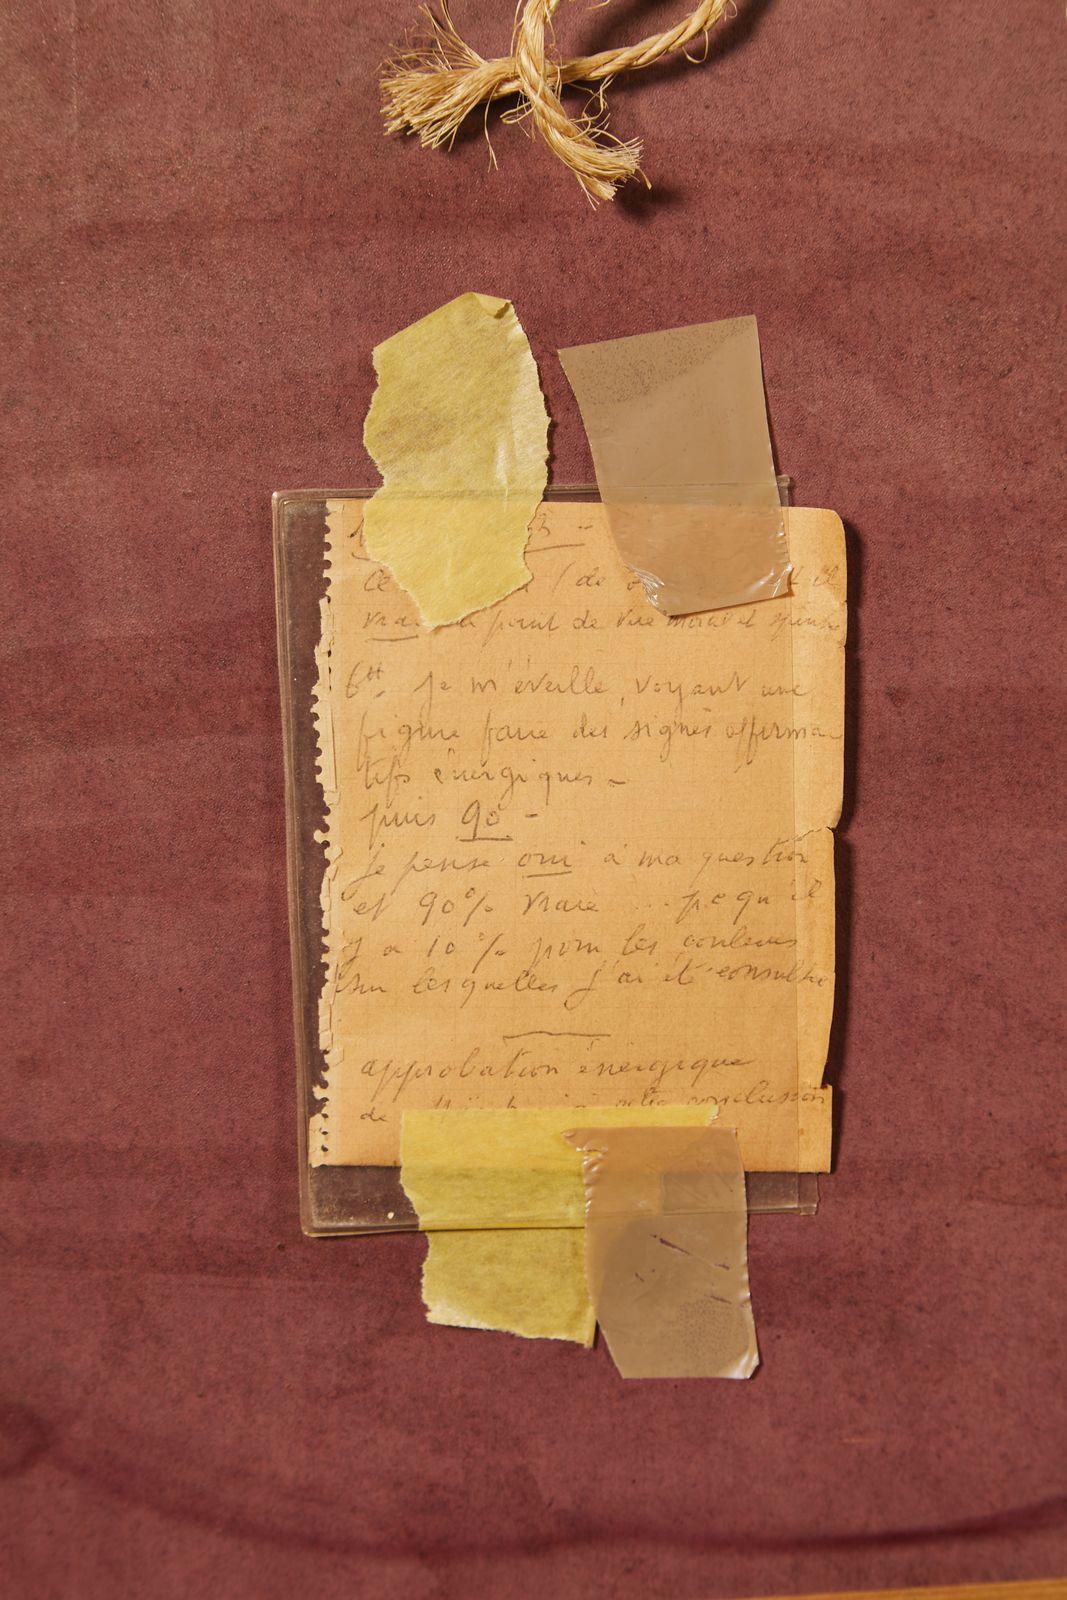 ce (de
vrai au point de vue moral et
6H. je m'éveille, voyant une
figure faire des signes affirma-
tifs énergiques -
puis 90 -
je pense oui à ma question
et 90% vraie ... pcqu'il
y a 10% pour les couleurs
sur lesquelles j'ai été consulté
approbation énergique
de à cette conclusion